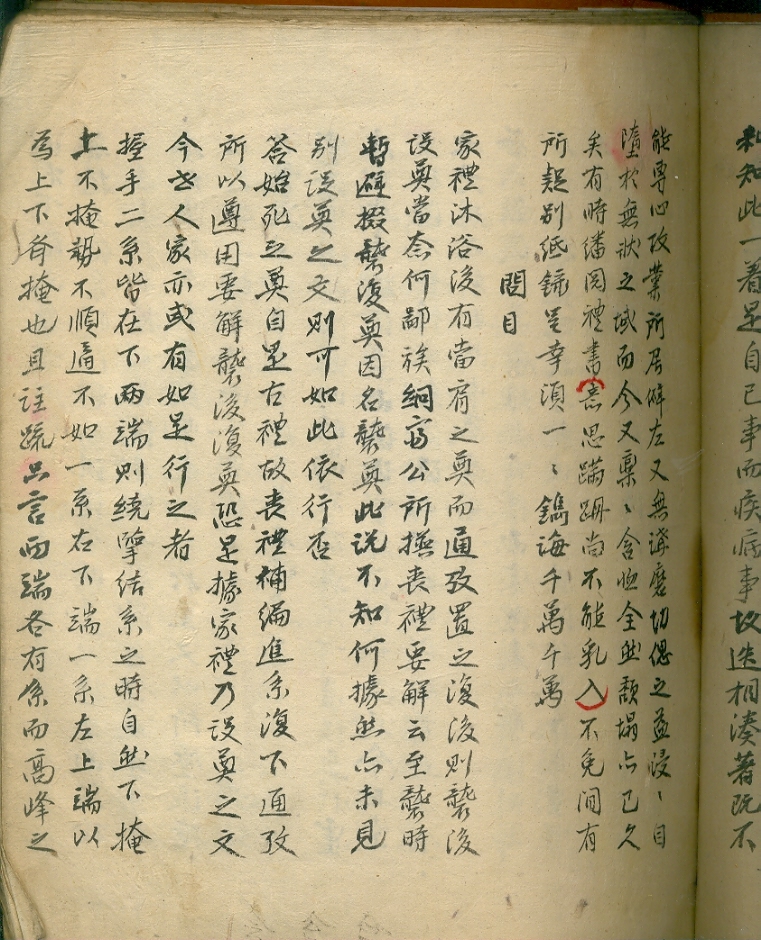 和知此一着是自己事而疾病事故迭相湊著既不
能專心攻業所居僻左又無講磨切偲之益浸〻自
墮於無狀之域而今又稟〻含恤全然頹塌亦已久
矣有時繙閱禮書意思蹣跚尚不能乳入不免間有
所疑別紙錄呈幸須一〻鐫誨千萬千萬
問目
家禮沐浴後有當肩之奠而通攷置之復後則襲後
設奠當奈何鄙族絅窩公所撰喪禮要解云至襲時
暫避掇襲復奠因名襲奠此說不知何據然亦未見
別設奠之文則可如此依行否
答始死之奠自是古禮故喪禮補編進系復下通攷
所以遵用要解襲後復奠恐是據家禮乃設奠之文
今世人家亦或有如是行之者
握手二系皆在下兩端則繞掔結系之時自然下掩
上不掩勢不順適不如一系右下端一系左上端以
為上下脊掩也且註疏只言兩端各有系而高峰之